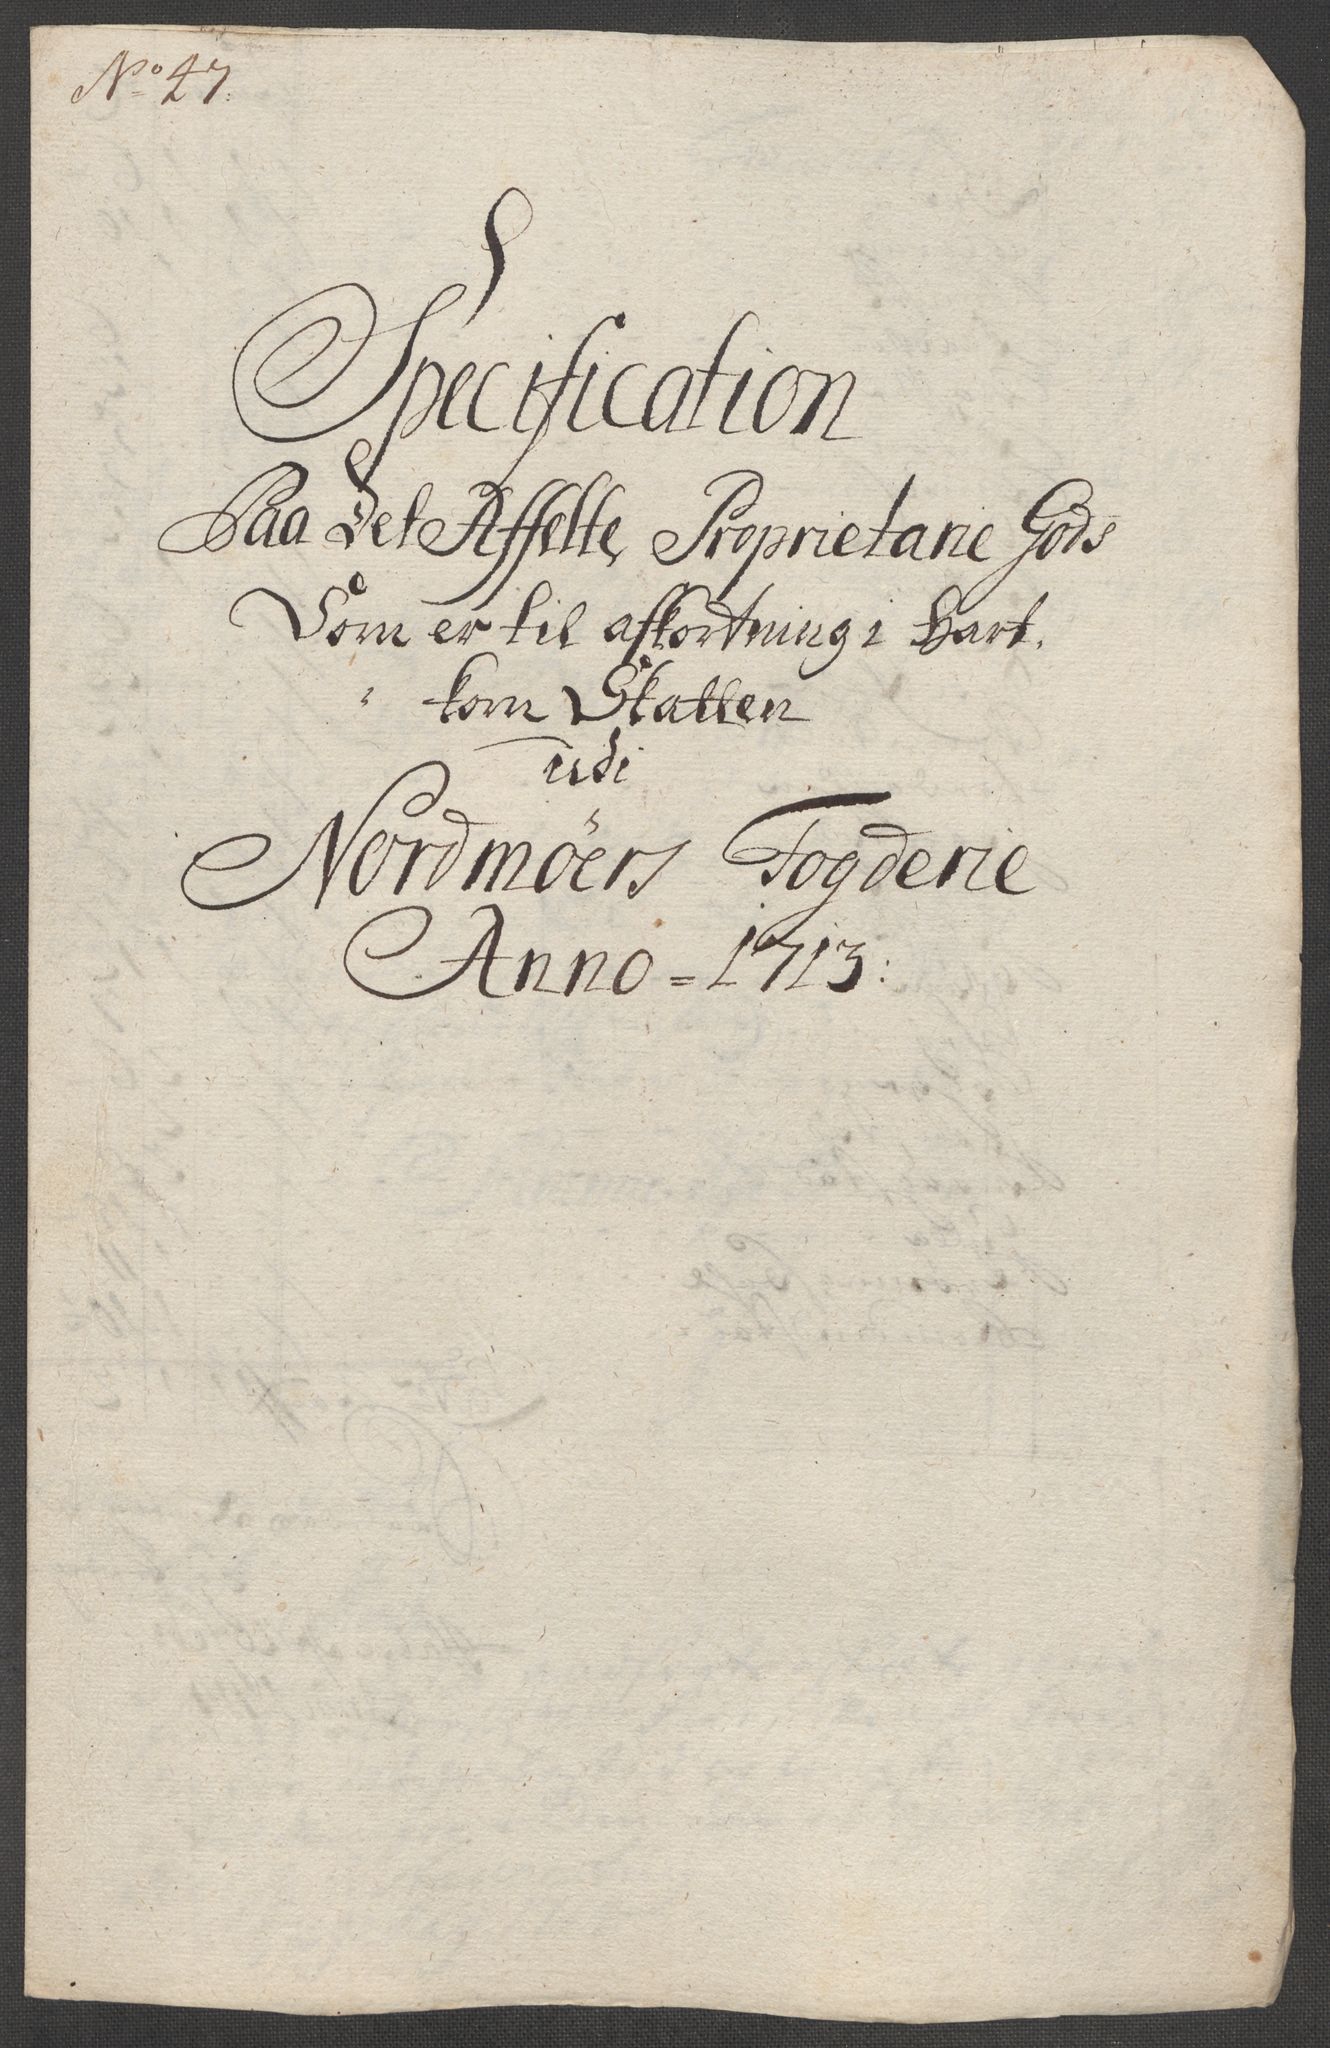 No 47:
Specification
Paa Det Affelte Proprietarie Gods
Som er til afkortning i Hart
korn Skatten
udi
Nordmöers Fogderie
Anno = 1713: